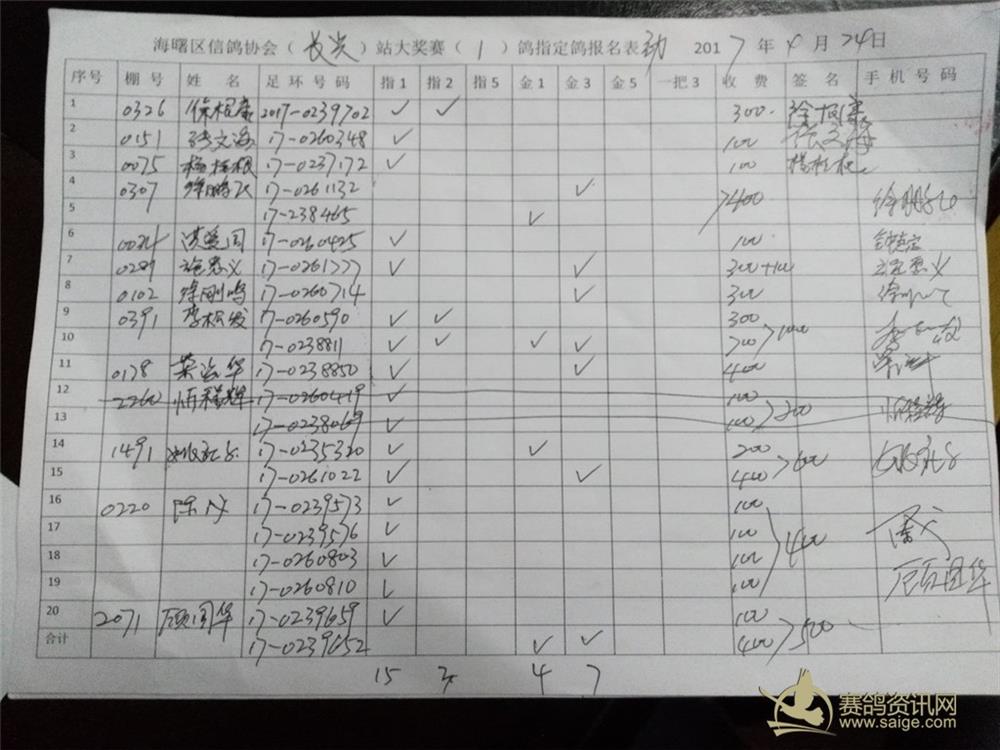 海曙区信鸽协会（长兴）站大奖赛（1）鸽指定鸽报名表 2017年4月24日
序号 棚号 姓名 足环号码 指1 指2 指5 金1 金3 金5 一把3 收费 签名 手机号码
1 0326 2017-0239702 ✓ ✓ 300
2 0151 张文海 17-0260348 ✓ 100 张文海
3 0075 杨桂根 17-0237172 ✓ 100 杨桂根
4 0307 徐鹏飞 17-0261132 ✓ >400 徐鹏飞
5 17-238465 ✓
6 17-0260425 ✓ 100
7 0289 17-0261777 ✓ ✓ 300+100
8 0102 徐刚鸣 17-0260714 ✓ 300
9 0391 李松发 17-0260590 ✓ ✓ 300
10 17-0238811 ✓ ✓ ✓ ✓ 700
11 0178 17-0238850 ✓ ✓ 400
12 2260 17-0260419 ✓ 100 >200
13 17-0238069 ✓ 100
14 1491 17-0235320 ✓ ✓ 200 >600
15 17-0261022 ✓ ✓ 400
16 0220 17-0239573 ✓ 100
17 17-0239576 ✓ 100 400
18 17-0260803 ✓ 100
19 17-0260810 ✓ 100 顾国华
20 2071 顾国华 17-0239659 ✓ 100 >500
合计 17-0239652 ✓ ✓ 400
15 3 4 7
赛鸽资讯网
www.saige.com